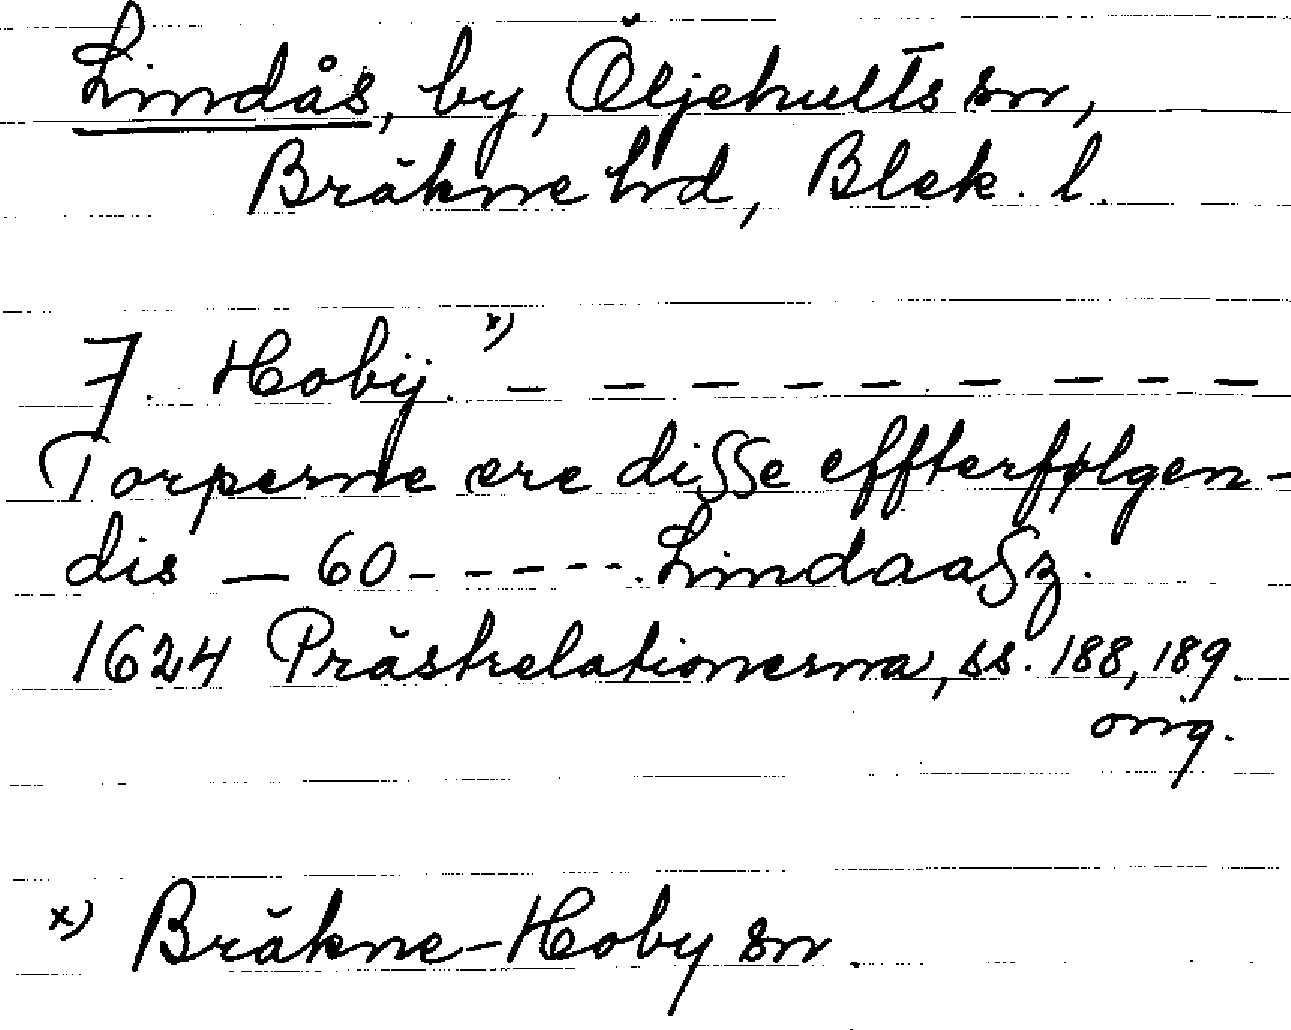 Lindås, by, Öljehults sn,
Bräkne hd, Blek. l.
J. Hobij. x) – – – – – – – – –
Torperne ere disse effterfølgen-
dis – 60 - - - - - . Lindaasz.
1624 Prästrelationerna, ss. 188, 189.
orig.
x) Bräkne-Hoby sn.